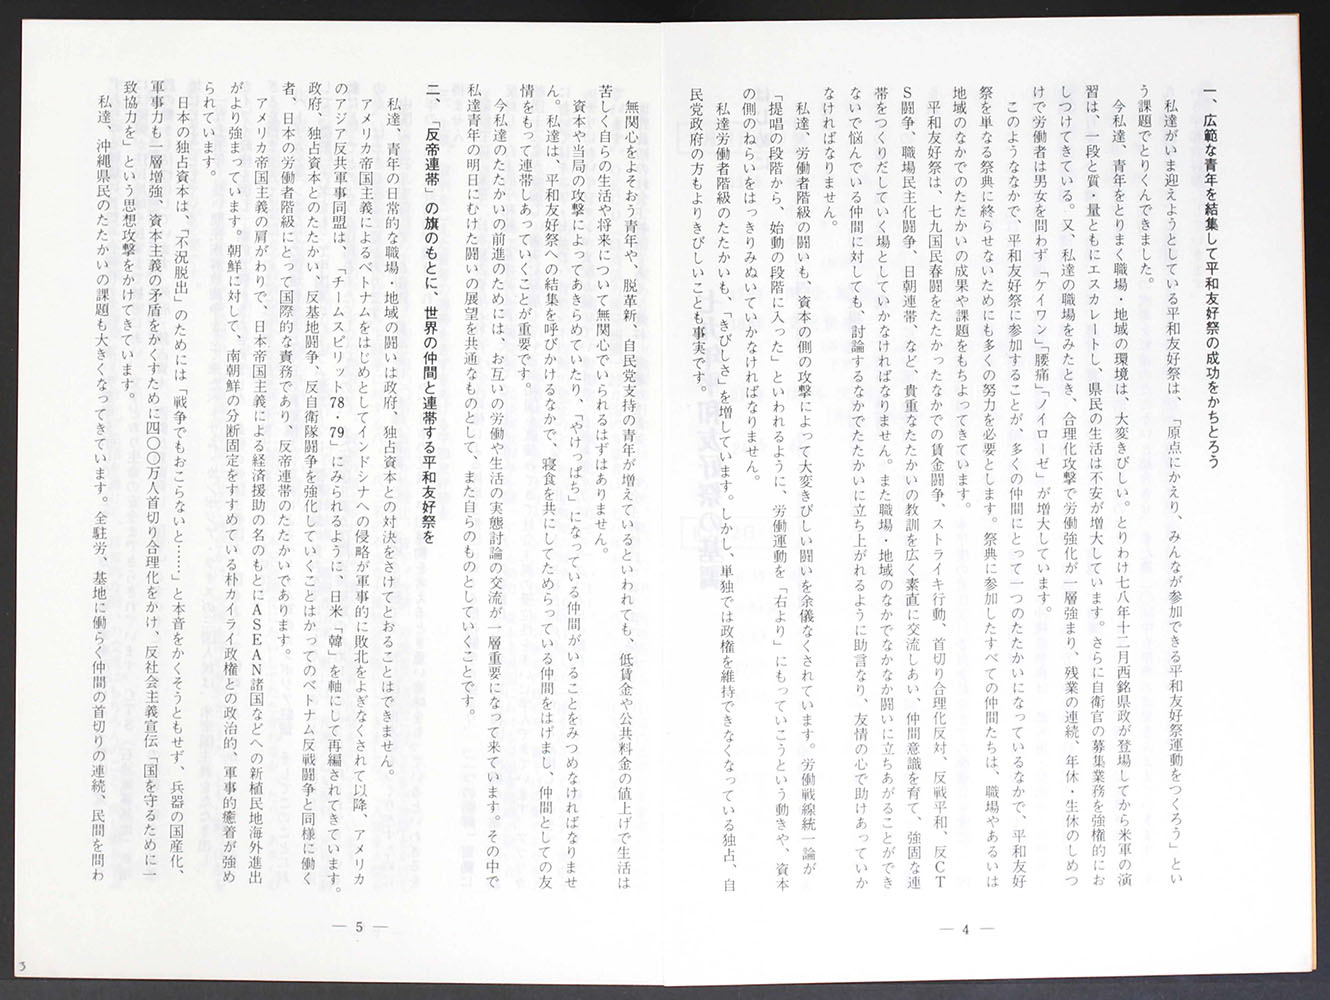 一、広範な青年を結集して平和友好祭の成功をかちとろう
私達がいま迎えようとしている平和友好祭は、「原点にかえり、みんなが参加できる平和友好祭運動をつくろう」とい
う課題でとりくんできました。
今私達、青年をとりまく職場・地域の環境は、大変きびしい。とりわけ七八年十二月西銘県政が登場してから米軍の演
習は、一段と質・量ともにエスカレートし、県民の生活は不安が増大しています。さらに自衛官の募集業務を強権的にお
しつけてきている。又、私達の職場をみたとき、合理化攻撃で労働強化が一層強まり、残業の連続、年休・生休のしめつ
けで労働者は男女を問わず「ケイワン」「腰痛」「ノイローゼ」が増大しています。
このようななかで、平和友好祭に参加することが、多くの仲間にとって一つのたたかいになっているなかで、平和友好
祭を単なる祭典に終らせないためにも多くの努力を必要とします。祭典に参加したすべての仲間たちは、職場やあるいは
地域のなかでのたたかいの成果や課題をもちよってきています。
平和友好祭は、七九国民春闘をたたかったなかでの賃金闘争、ストライキ行動、首切り合理化反対、反戦平和、反CT
S闘争、職場民主化闘争、日朝連帯、など、貴重なたたかいの教訓を広く素直に交流しあい、仲間意識を育て、強固な連
帯をつくりだしていく場としていかなければなりません。また職場・地域のなかでなかなか闘いに立ちあがることができ
ないで悩んでいる仲間に対しても、討論するなかでたたかいに立ち上がれるように助言なり、友情の心で助けあっていか
なければなりません。
私達、労働者階級の闘いも、資本の側の攻撃によって大変きびしい闘いを余儀なくされています。労働戦線統一論が
「提唱の段階から、始動の段階に入った」といわれるように、労働運動を「右より」にもっていこうという動きや、資本
の側のねらいをはっきりみぬいていかなければなりません。
私達労働者階級のたたかいも、「きびしさ」を増しています。しかし、単独では政権を維持できなくなっている独占、自
民党政府の方もよりきびしいことも事実です。
— 4 —
無関心をよそおう青年や、脱革新、自民党支持の青年が増えているといわれても、低賃金や公共料金の値上げで生活は
苦しく自らの生活や将来について無関心でいられるはずはありません。
資本や当局の攻撃によってあきらめていたり、「やけっぱち」になっている仲間がいることをみつめなければなりませ
ん。私達は、平和友好祭への結集を呼びかけるなかで、寝食を共にしてためらっている仲間をはげまし、仲間としての友
情をもって連帯しあっていくことが重要です。
今私達のたたかいの前進のためには、お互いの労働や生活の実態討論の交流が一層重要になって来ています。その中で
私達青年の明日にむけた闘いの展望を共通なものとして、また自らのものとしていくことです。
二、「反帝連帯」の旗のもとに、世界の仲間と連帯する平和友好祭を
私達、青年の日常的な職場・地域の闘いは政府、独占資本との対決をさけてとおることはできません。
アメリカ帝国主義によるベトナムをはじめとしてインドシナへの侵略が軍事的に敗北をよぎなくされて以降、アメリカ
のアジア反共軍事同盟は、「チームスピリット78・79」にみられるように、日米「韓」を軸にして再編されてきています。
政府、独占資本とのたたかい、反基地闘争、反自衛隊闘争を強化していくことはかってのベトナム反戦闘争と同様に働く
者、日本の労働者階級にとって国際的な責務であり、反帝連帯のたたかいであります。
アメリカ帝国主義の肩がわりで、日本帝国主義による経済援助の名のもとにASEAN諸国などへの新植民地海外進出
がより強まっています。朝鮮に対して、南朝鮮の分断固定をすすめている朴カイライ政権との政治的、軍事的癒着が強め
られています。
日本の独占資本は、「不況脱出」のためには「戦争でもおこらないと……」と本音をかくそうともせず、兵器の国産化、
軍事力も一層増強、資本主義の矛盾をかくすために四〇〇万人首切り合理化をかけ、反社会主義宣伝「国を守るために一
致協力を」という思想攻撃をかけてきています。
私達、沖縄県民のたたかいの課題も大きくなってきています。全駐労、基地に働らく仲間の首切りの連続、民間を問わ
— 5 —
3